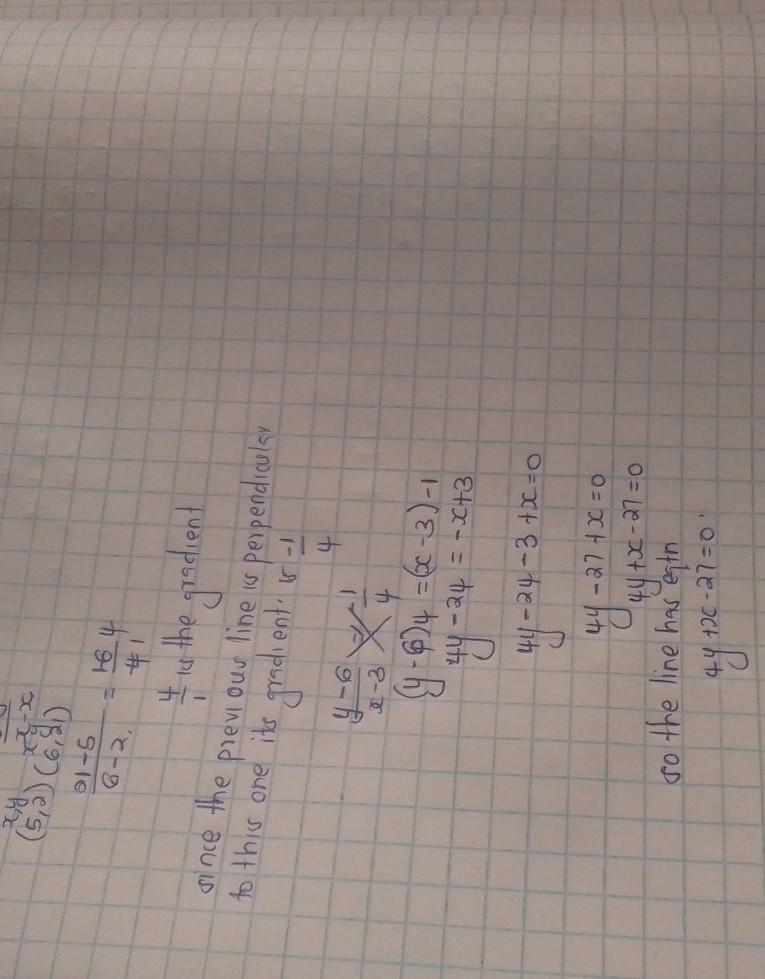 x,y x y - x
(5,2) (6,21)
21-5 / 6-2 = 16 4 / 4 1
4/1 is the gradient
since the previous line is perpendicular
to this one its gradient. is -1/4
y-6 / x-3 = -1 / 4
(y-6)4 = (x-3)-1
4y-24 = -x+3
4y-24-3+x=0
4y-27+x=0
4y+x-27=0
so the line has eqtn
4y+x-27=0